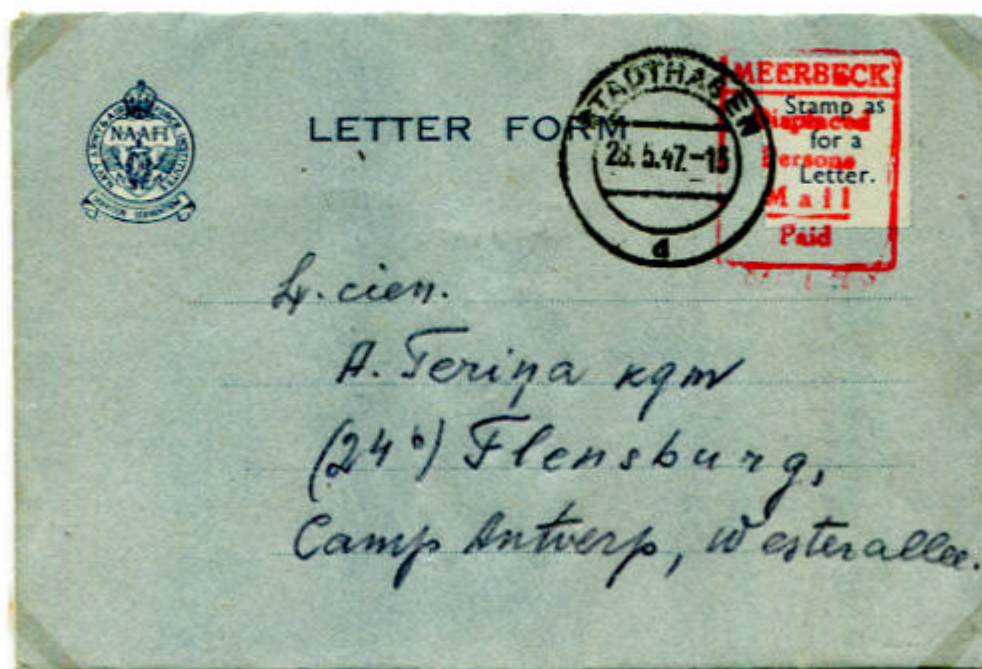 NAAFI
LETTER FORM
STADTHAGEN
23.5.47.-13
d
MEERBECK
Displaced
Persons
Mail
Paid
Stamp as
for a
Letter.
A. Teriņa kgm
(24b) Flensburg,
Camp Antverp, Westerallee.